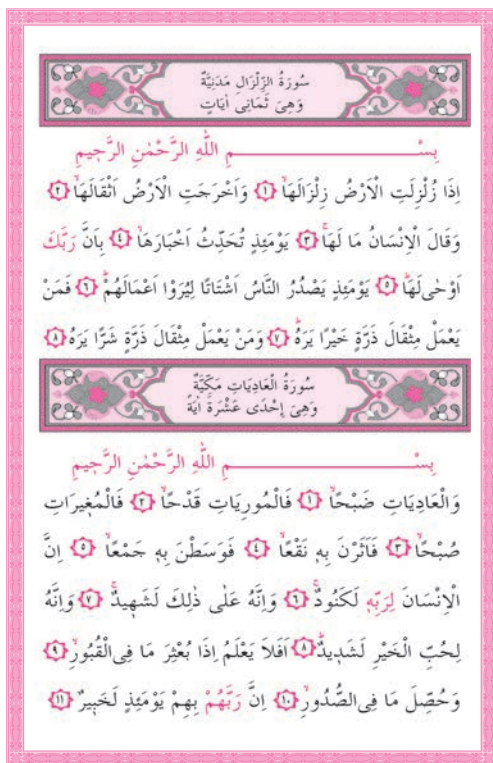 سُورَةُ الزِّلْزَالِ مَدَنِيَّةٌ
وَهِىَ ثَمَانِى اٰيَاتٍ
بِسْــــــــــــــــــمِ اللّٰهِ الرَّحْمٰنِ الرَّحٖيمِ
اِذَا زُلْزِلَتِ الْاَرْضُ زِلْزَالَهَاۙ ﴿١﴾ وَاَخْرَجَتِ الْاَرْضُ اَثْقَالَهَاۙ ﴿٢﴾
وَقَالَ الْاِنْسَانُ مَا لَهَاۚ ﴿٣﴾ يَوْمَئِذٍ تُحَدِّثُ اَخْبَارَهَاۙ ﴿٤﴾ بِاَنَّ رَبَّكَ
اَوْحٰى لَهَاؕ ﴿٥﴾ يَوْمَئِذٍ يَصْدُرُ النَّاسُ اَشْتَاتًا لِيُرَوْا اَعْمَالَهُمْؕ ﴿٦﴾ فَمَنْ
يَعْمَلْ مِثْقَالَ ذَرَّةٍ خَيْرًا يَرَهُؕ ﴿٧﴾ وَمَنْ يَعْمَلْ مِثْقَالَ ذَرَّةٍ شَرًّا يَرَهُ ﴿٨﴾
سُورَةُ الْعَادِيَاتِ مَكِّيَّةٌ
وَهِىَ اِحْدٰى عَشْرَةَ اٰيَةً
بِسْــــــــــــــــــمِ اللّٰهِ الرَّحْمٰنِ الرَّحٖيمِ
وَالْعَادِيَاتِ ضَبْحًاۙ ﴿١﴾ فَالْمُورِيَاتِ قَدْحًاۙ ﴿٢﴾ فَالْمُغٖيرَاتِ
صُبْحًاۙ ﴿٣﴾ فَاَثَرْنَ بِهٖ نَقْعًاۙ ﴿٤﴾ فَوَسَطْنَ بِهٖ جَمْعًاۙ ﴿٥﴾ اِنَّ
الْاِنْسَانَ لِرَبِّهٖ لَكَنُودٌۚ ﴿٦﴾ وَاِنَّهُ عَلٰى ذٰلِكَ لَشَهٖيدٌۚ ﴿٧﴾ وَاِنَّهُ
لِحُبِّ الْخَيْرِ لَشَدٖيدٌؕ ﴿٨﴾ اَفَلَا يَعْلَمُ اِذَا بُعْثِرَ مَا فِى الْقُبُورِۙ ﴿٩﴾
وَحُصِّلَ مَا فِى الصُّدُورِۙ ﴿١٠﴾ اِنَّ رَبَّهُمْ بِهِمْ يَوْمَئِذٍ لَخَبٖيرٌ ﴿١١﴾